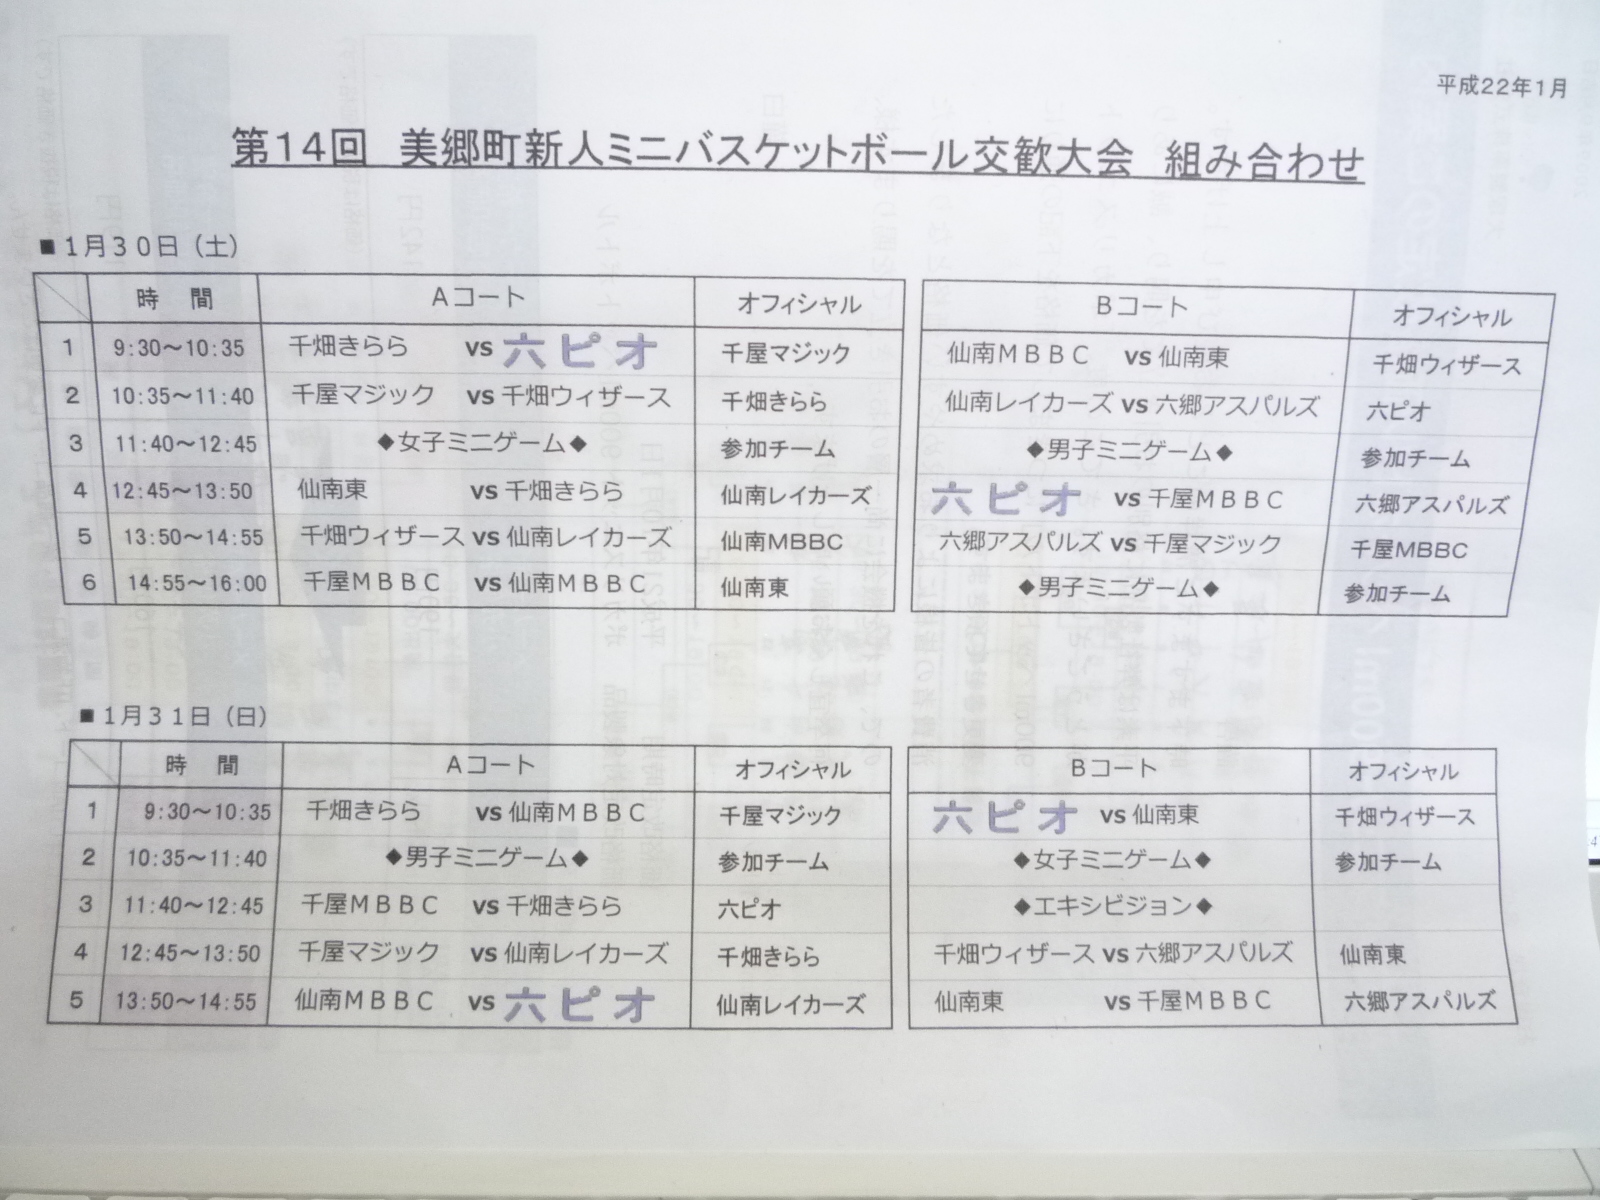 平成22年1月
第14回　美郷町新人ミニバスケットボール交歓大会　組み合わせ
■1月30日（土）
時　間　Aコート　オフィシャル　Bコート　オフィシャル
1　9:30～10:35　千畑きらら　vs 六ピオ　千屋マジック　仙南MBBC　vs 仙南東　千畑ウィザース
2　10:35～11:40　千屋マジック　vs 千畑ウィザース　千畑きらら　仙南レイカーズ vs 六郷アスパルズ　六ピオ
3　11:40～12:45　◆女子ミニゲーム◆　参加チーム　◆男子ミニゲーム◆　参加チーム
4　12:45～13:50　仙南東　vs 千畑きらら　仙南レイカーズ　六ピオ　vs 千屋MBBC　六郷アスパルズ
5　13:50～14:55　千畑ウィザース vs 仙南レイカーズ　仙南MBBC　六郷アスパルズ vs 千屋マジック　千屋MBBC
6　14:55～16:00　千屋MBBC　vs 仙南MBBC　仙南東　◆男子ミニゲーム◆　参加チーム
■1月31日（日）
時　間　Aコート　オフィシャル　Bコート　オフィシャル
1　9:30～10:35　千畑きらら　vs 仙南MBBC　千屋マジック　六ピオ　vs 仙南東　千畑ウィザース
2　10:35～11:40　◆男子ミニゲーム◆　参加チーム　◆女子ミニゲーム◆　参加チーム
3　11:40～12:45　千屋MBBC　vs 千畑きらら　六ピオ　◆エキシビジョン◆
4　12:45～13:50　千屋マジック　vs 仙南レイカーズ　千畑きらら　千畑ウィザース vs 六郷アスパルズ　仙南東
5　13:50～14:55　仙南MBBC　vs 六ピオ　仙南レイカーズ　仙南東　vs 千屋MBBC　六郷アスパルズ